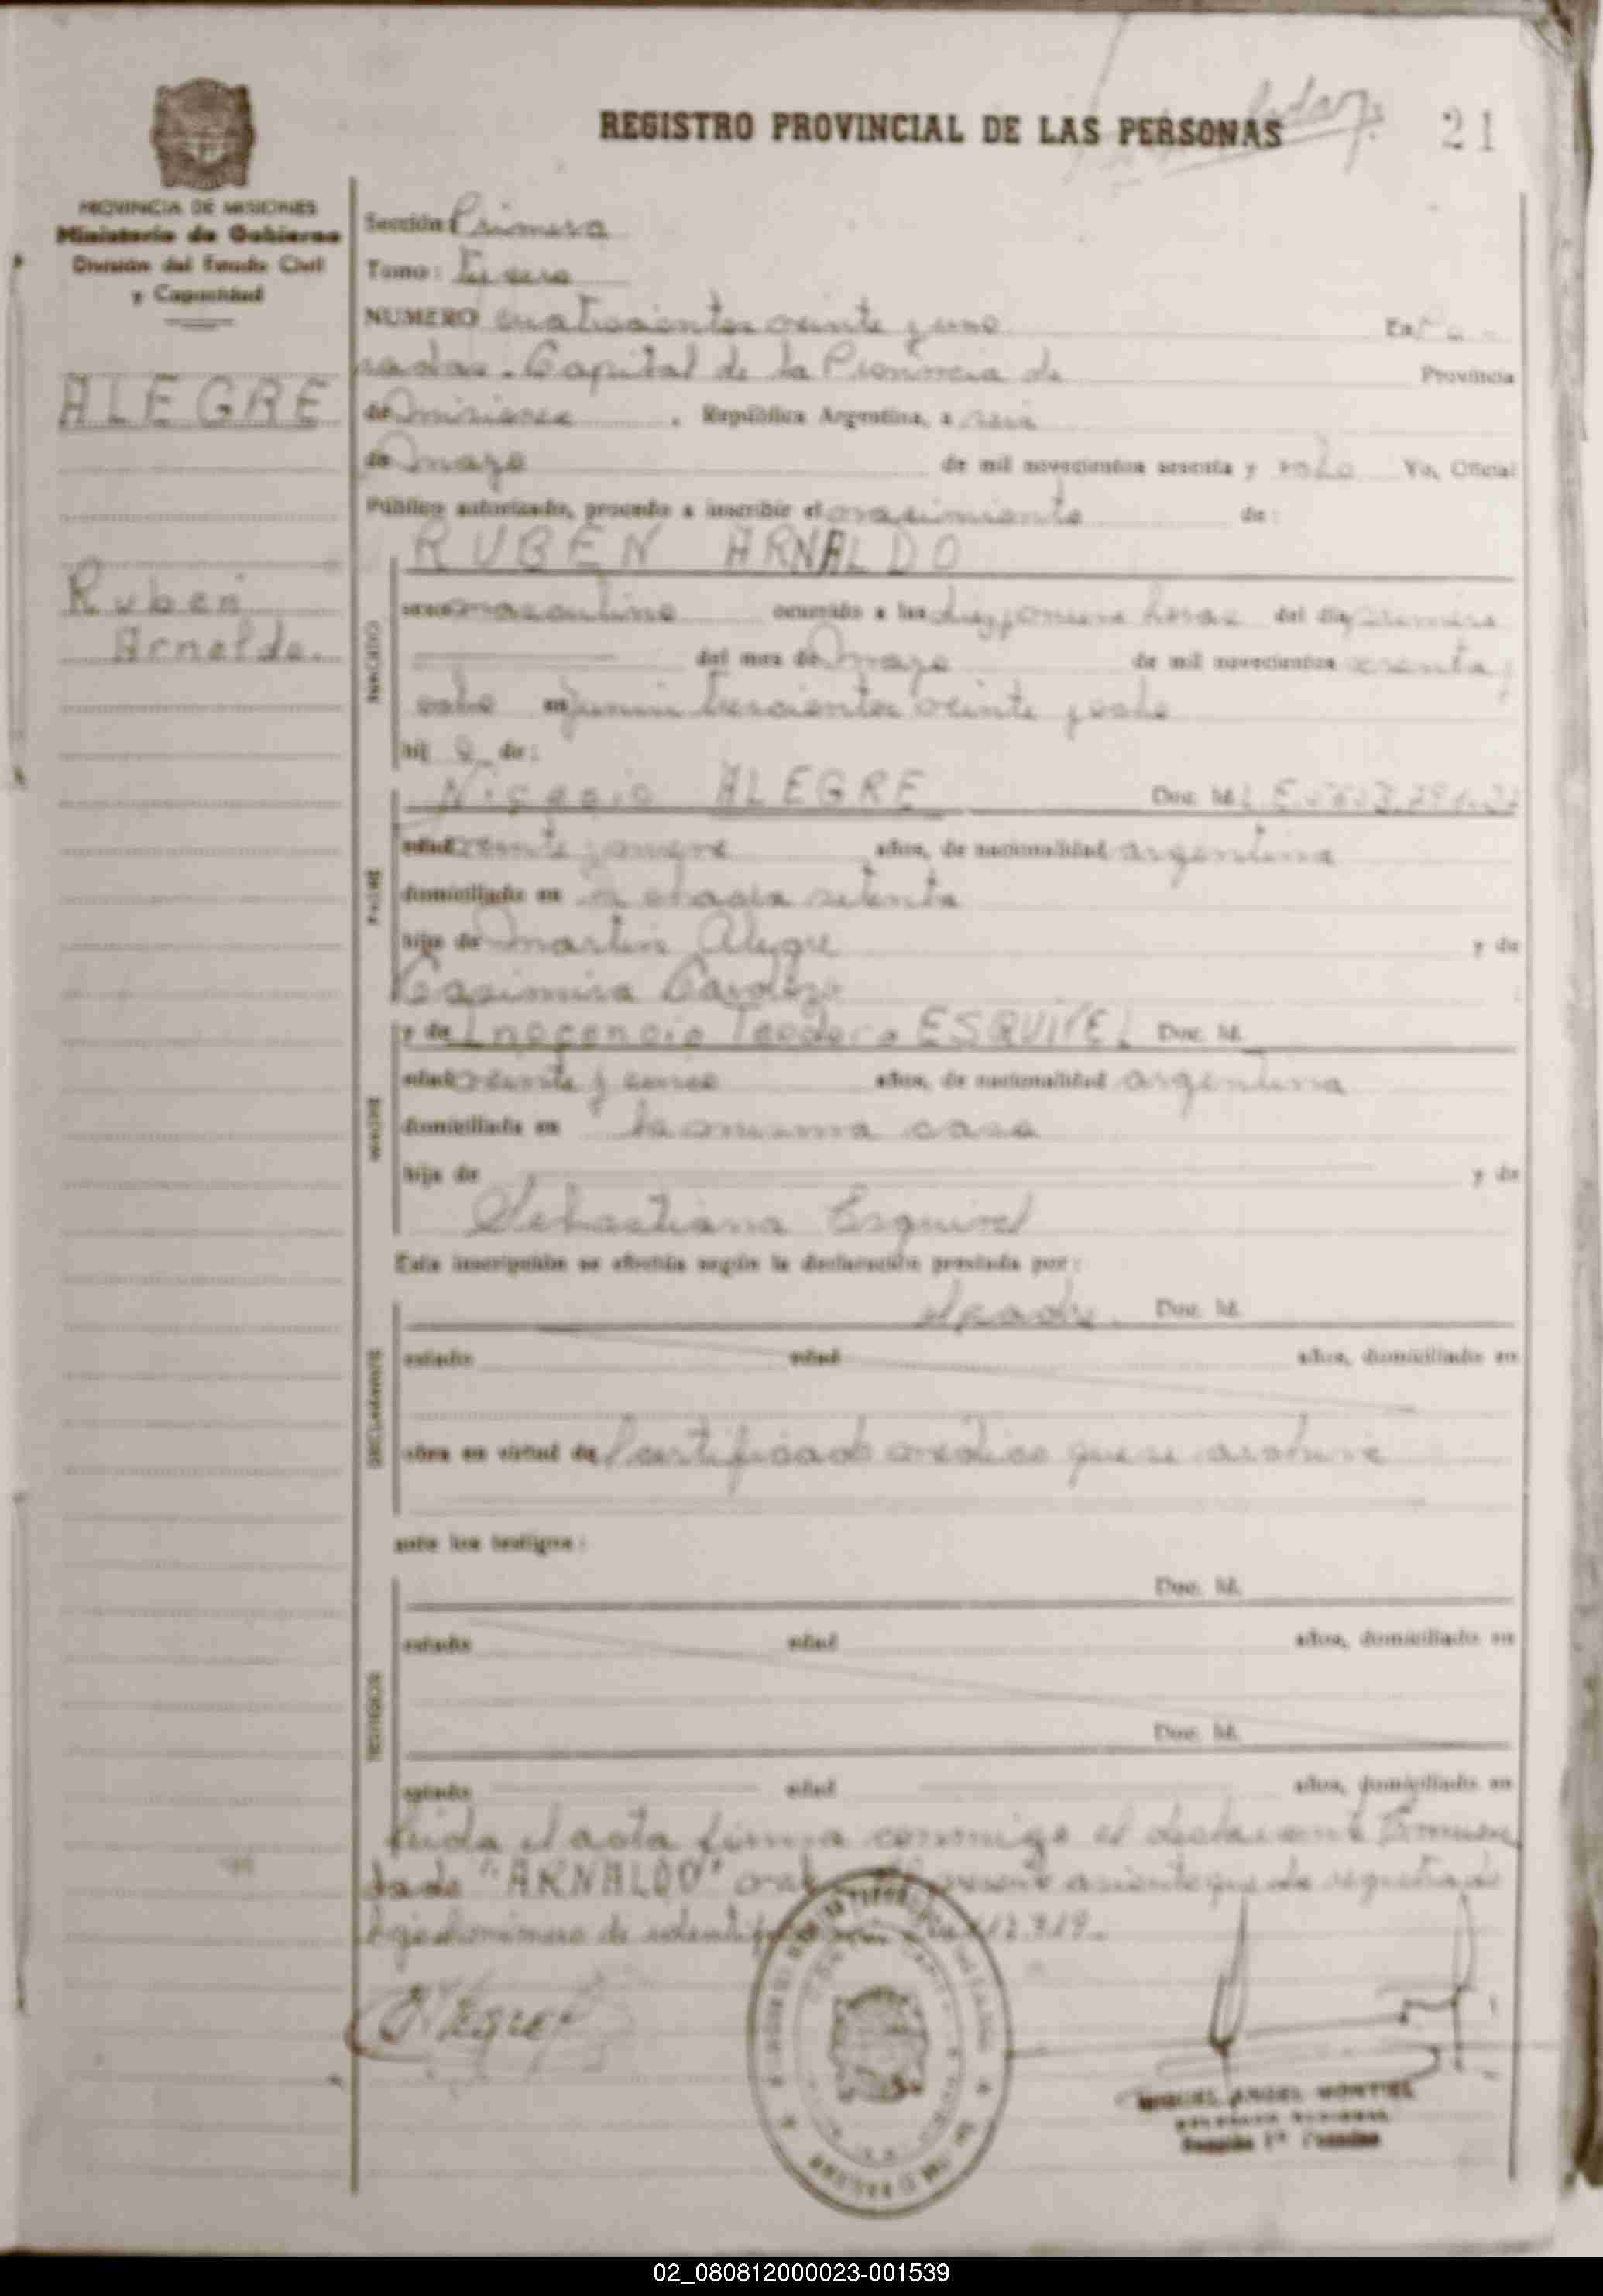 REGISTRO PROVINCIAL DE LAS PERSONAS
21
PROVINCIA DE MISIONES
Ministerio de Gobierno
División del Estado Civil
y Capacidad
ALEGRE
Ruben
Arnaldo.
Sección Primera
Tomo:
NUMERO cuatrocientos veinte y uno En Po-
sadas. Capital de la Provincia de Provincia
de Misiones , República Argentina, a seis
de Mayo de mil novecientos sesenta y ocho Yo, Oficial
Público autorizado, procedo a inscribir el nacimiento de:
RUBEN ARNALDO
NACIDO
sexo masculino ocurrido a las horas del día primero
del mes de Mayo de mil novecientos sesenta y
ocho en Junin trescientos veinte y ocho
hij o de:
PADRE
ALEGRE Doc. Id.
edad veinte y nueve años, de nacionalidad argentina
domiciliado en la chacra setenta
hijo de Martin Alegre y de
Casimira Cardozo
MADRE
y de Inocencia Teodora ESQUIVEL Doc. Id.
edad veinte y cinco años, de nacionalidad argentina
domiciliada en la misma casa
hija de y de
Sebastiana Esquivel
Esta inscripción se efectúa según la declaración prestada por:
DECLARANTE
el padre. Doc. Id.
estado edad años, domiciliado en
obra en virtud de Certificado médico que se archive
ante los testigos:
TESTIGOS
Doc. Id.
estado edad años, domiciliado en
Doc. Id.
estado edad años, domiciliado en
Leida el acta firma conmigo el declarante Enmien
dado "ARNALDO" vale presente asiento queda registrado
bajo el número de
MIGUEL ANGEL MONTIEL
02_080812000023-001539